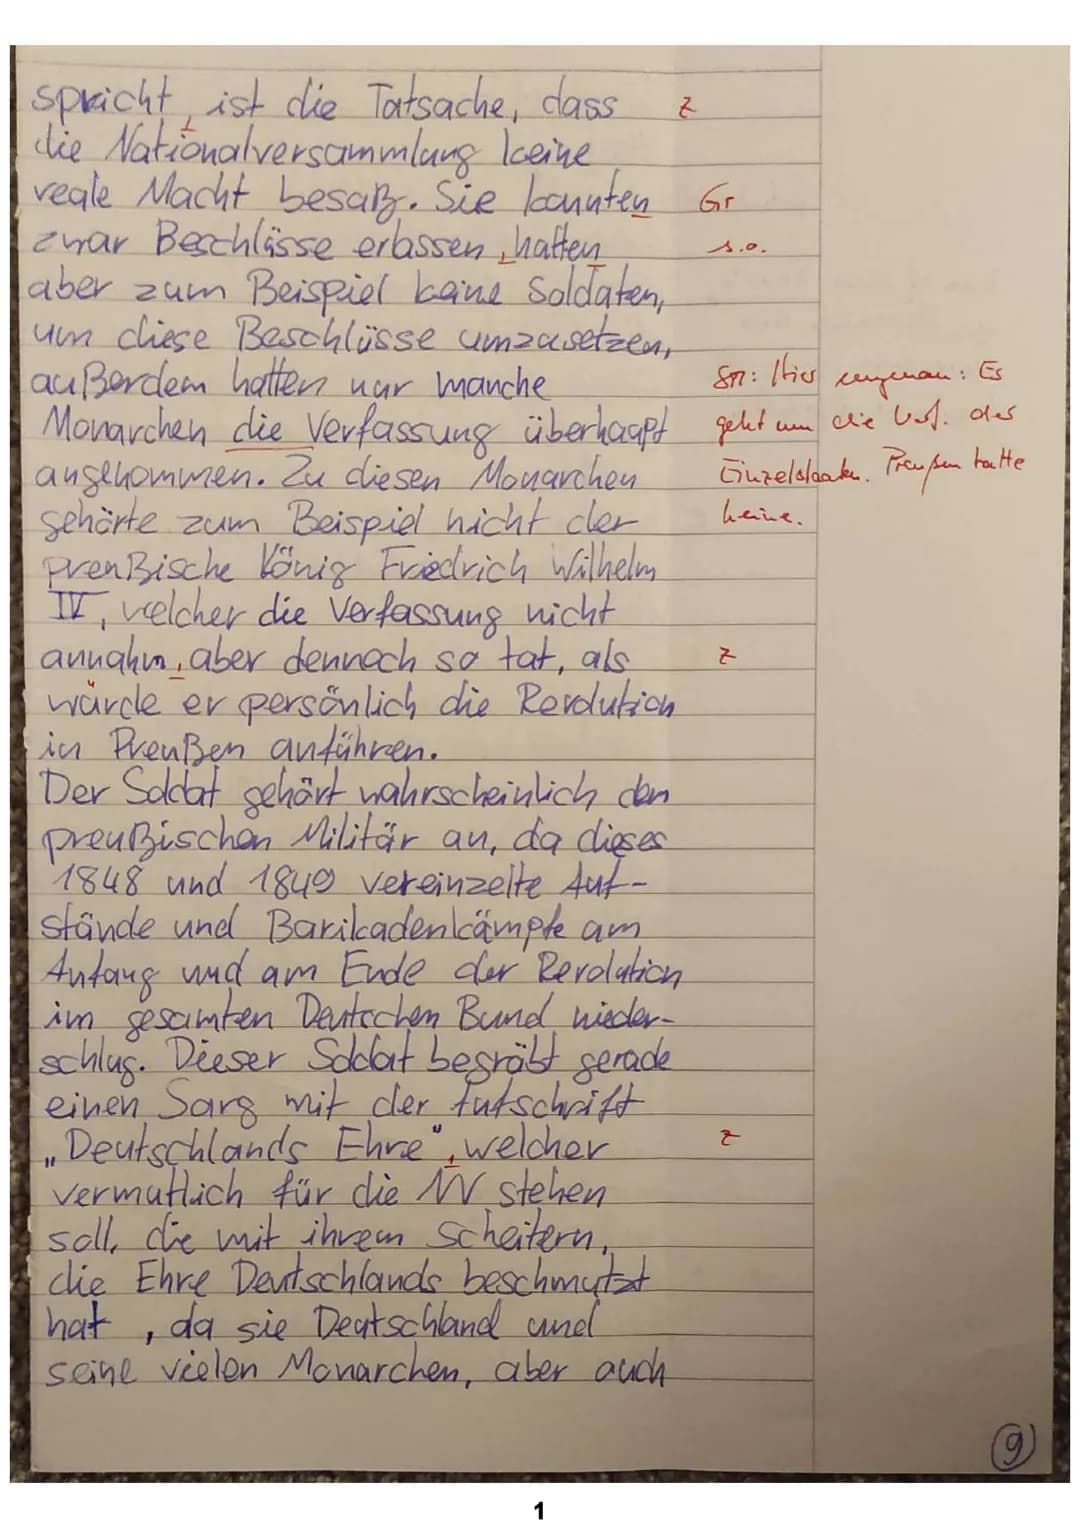 spricht, ist die Tatsache, dass z
die Nationalversammlung keine
reale Macht besaß. Sie konnten Gr
zwar Beschlüsse erlassen, hatten s.o.
aber zum Beispiel keine Soldaten,
um diese Beschlüsse umzusetzen,
außerdem hatten nur manche
Monarchen die Verfassung überhaupt
angenommen. Zu diesen Monarchen
gehörte zum Beispiel nicht der
preußische König Friedrich Wilhelm
IV, welcher die Verfassung nicht
annahm, aber dennoch so tat, als z
würde er persönlich die Revolution
in Preußen anführen.
Der Soldat gehört wahrscheinlich dem
preußischen Militär an, da dieses
1848 und 1849 vereinzelte Auf-
stände und Barikadenkämpfe am
Anfang und am Ende der Revolution
im gesamten Deutschen Bund nieder-
schlug. Dieser Soldat begräbt gerade
einen Sarg mit der Aufschrift
„Deutschlands Ehre", welcher z
vermutlich für die NV stehen
soll, die mit ihrem Scheitern,
die Ehre Deutschlands beschmutzt
hat, da sie Deutschland und
seine vielen Monarchen, aber auch
Hier ungenau: Es
geht um die Verf. des
Einzelstaaten. Preußen hatte
keine.
9
1